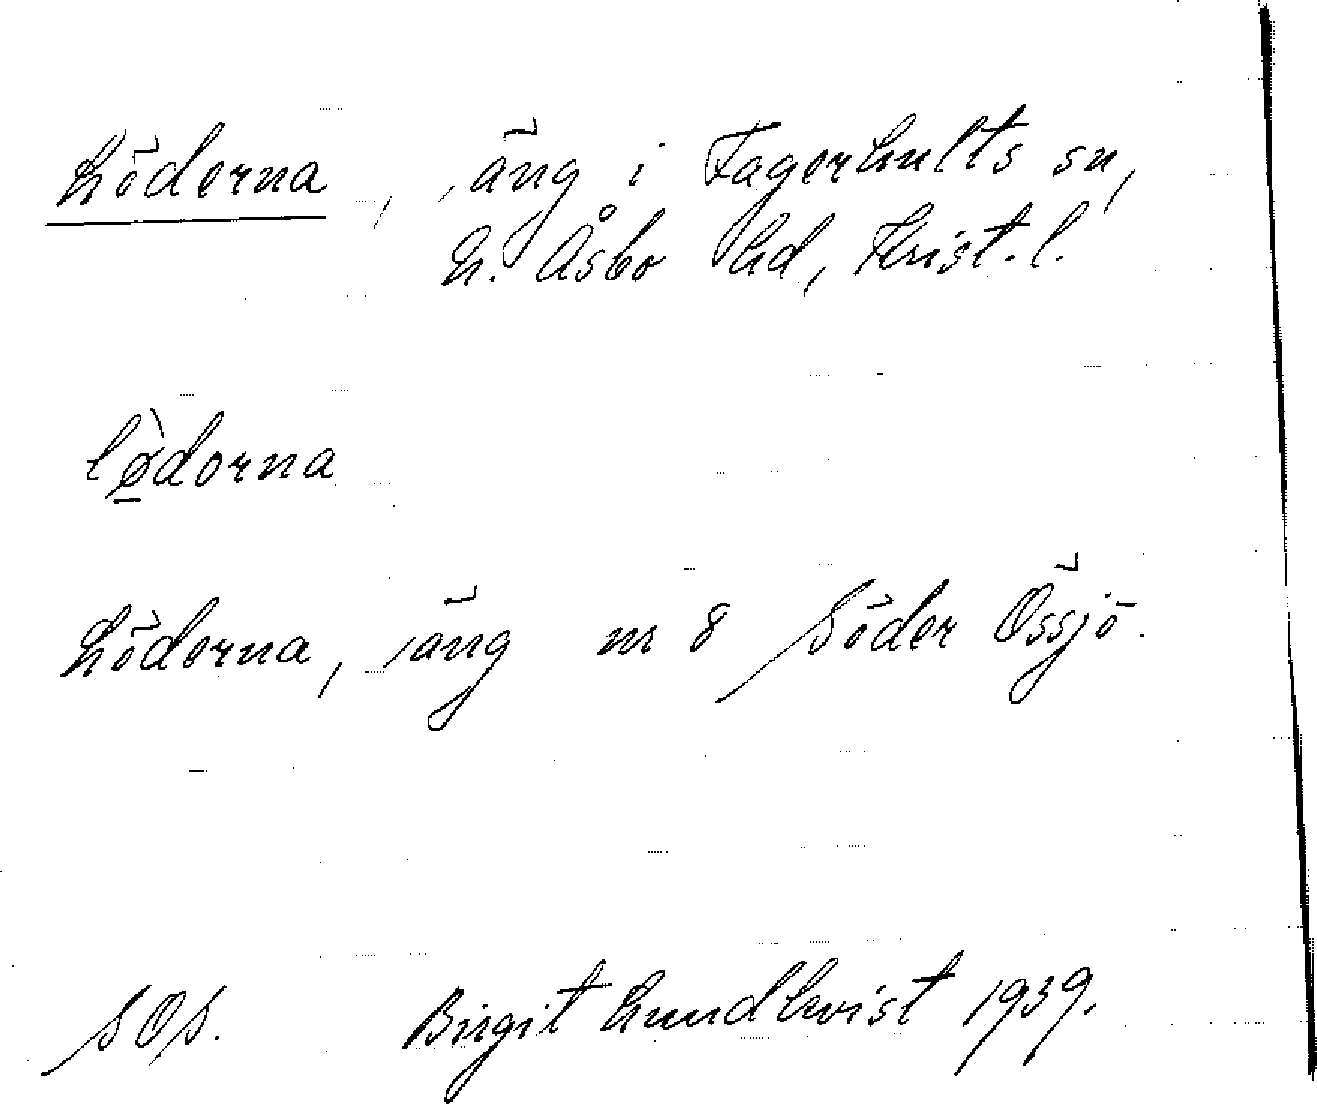 Löderna, äng i Fagerhults sn,
N. Åsbo hd, Krist. l.
lø̀dərna
Löderna, äng nr 8 Söder Össjö.
SOS. Birgit Lundkvist 1939.